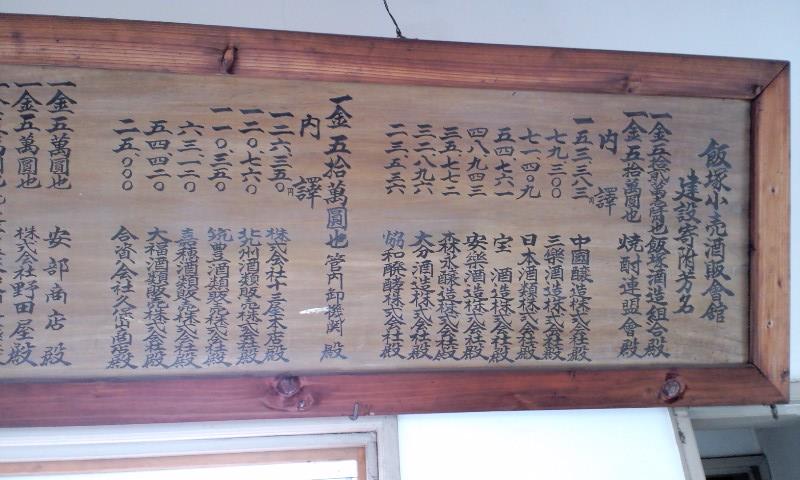 飯塚小売酒販會館
建設寄附芳名
一金五拾貳萬壱百也 飯塚酒造組合殿
一金五拾萬圓也 焼酎連盟會殿
内譯
一五三、三八三円 中國醸造株式会社殿
七九、三〇〇 三樂酒造株式会社殿
七一、四〇九 日本酒類株式会社殿
五四、七六一 宝酒造株式会社殿
四八、九四三 安楽酒造株式会社殿
三五、七七二 森永醸造株式会社殿
三二、八九六 大分酒造株式会社殿
二三、五三六 協和醗酵株式会社殿
一金五拾萬圓也 管内卸機関殿
内譯
一二六、三五〇円 株式会社十三屋本店殿
一二〇、七六〇 北州酒類販売株式会社殿
一一〇、三五〇 筑豊酒類販売株式会社殿
六三、一二〇 嘉穂酒類販売株式会社殿
五四、四二〇 大福酒類販売株式会社殿
二五、〇〇〇 合資会社久岱商店殿
一金五萬圓也 安部商店殿
一金五萬圓也 株式会社野田屋殿